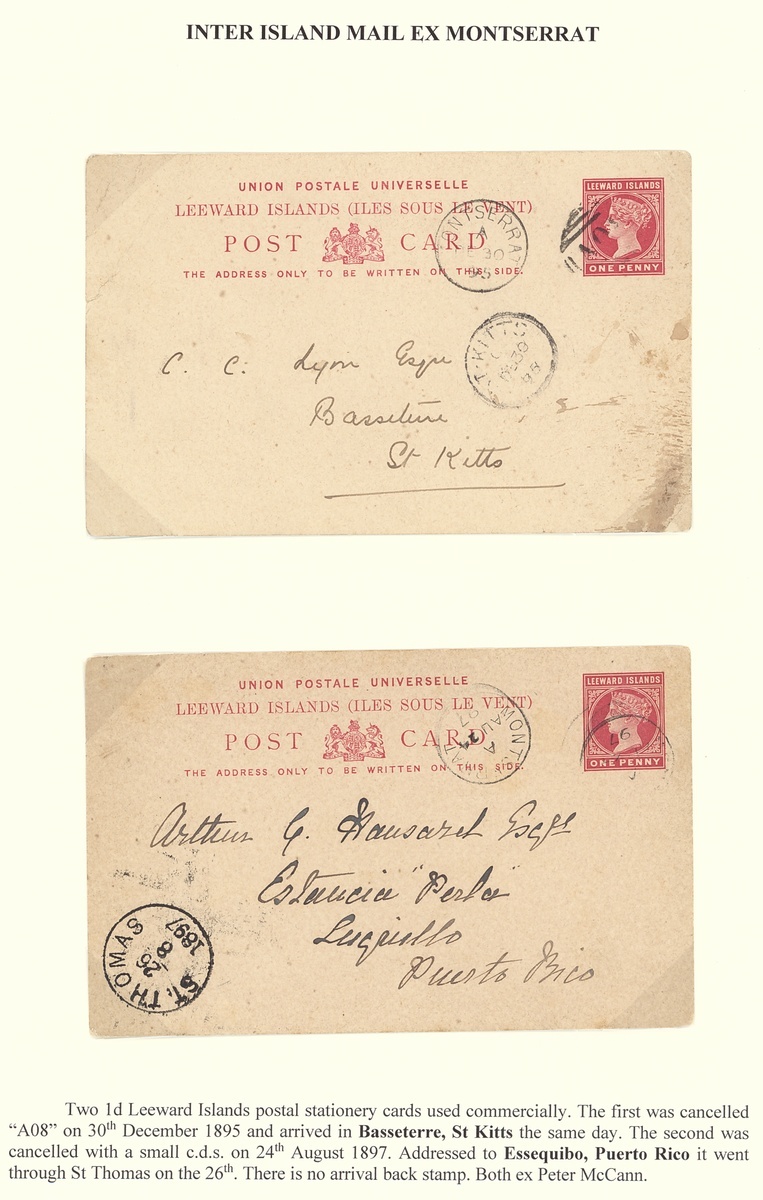 INTER ISLAND MAIL EX MONTSERRAT
UNION POSTALE UNIVERSELLE
LEEWARD ISLANDS (ILES SOUS LE VENT)
POST CARD
THE ADDRESS ONLY TO BE WRITTEN ON THIS SIDE.
LEEWARD ISLANDS
ONE PENNY
MONTSERRAT
A
DE 30
95
A08
ST. KITTS
DE 30
C. C. Lyon Esqre
Basseterre
St Kitts
UNION POSTALE UNIVERSELLE
LEEWARD ISLANDS (ILES SOUS LE VENT)
POST CARD
THE ADDRESS ONLY TO BE WRITTEN ON THIS SIDE.
LEEWARD ISLANDS
ONE PENNY
MONTSERRAT
A
AU 24
97
97
Arthur G. Hansard Esqre
Estancia "Perla"
Luquillo
Puerto Rico
ST. THOMAS
26
8
1897
Two 1d Leeward Islands postal stationery cards used commercially. The first was cancelled
"A08" on 30th December 1895 and arrived in Basseterre, St Kitts the same day. The second was
cancelled with a small c.d.s. on 24th August 1897. Addressed to Essequibo, Puerto Rico it went
through St Thomas on the 26th. There is no arrival back stamp. Both ex Peter McCann.